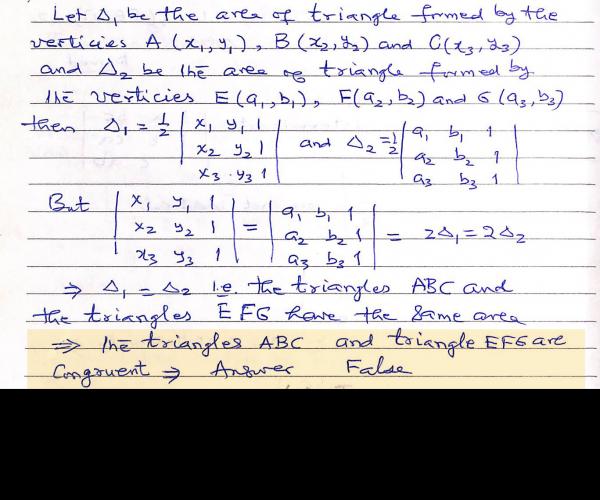 Let Δ₁ be the area of triangle formed by the
verticies A (x₁, y₁), B (x₂, y₂) and C(x₃, y₃)
and Δ₂ be the area of triangle formed by
the verticies E (a₁, b₁), F(a₂, b₂) and G (a₃, b₃)
then Δ₁ = 1/2 | x₁ y₁ 1 | and Δ₂ = 1/2 | a₁ b₁ 1 |
| x₂ y₂ 1 | | a₂ b₂ 1 |
| x₃ y₃ 1 | | a₃ b₃ 1 |
But | x₁ y₁ 1 | = | a₁ b₁ 1 | = 2Δ₁ = 2Δ₂
| x₂ y₂ 1 | | a₂ b₂ 1 |
| x₃ y₃ 1 | | a₃ b₃ 1 |
⇒ Δ₁ = Δ₂ i.e. the triangles ABC and
the triangles EFG have the same area
⇒ the triangles ABC and triangle EFG are
Congruent ⇒ Answer False